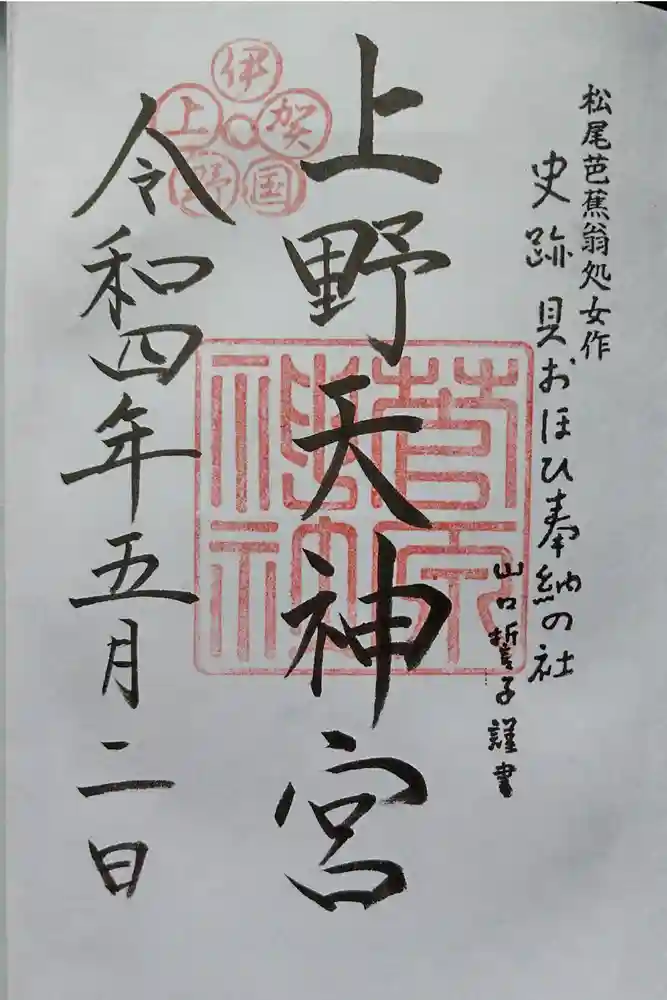 松尾芭蕉翁処女作
史跡 貝おほひ奉納の社
山口誓子謹書
上野天神宮
伊賀国上野
令和四年五月二日